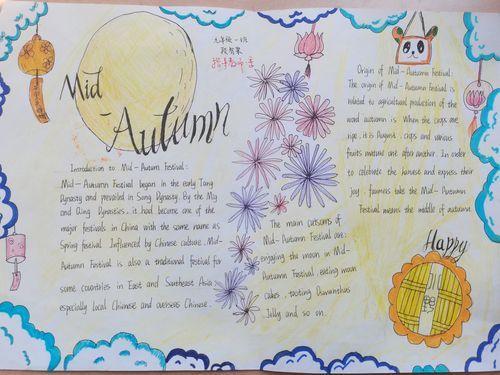 Mid
-Autumn
九年级一班
Introduction to Mid-Autumn Festival:
Mid-Autumn Festival began in the early Tang
Dynasty and prevailed in Song Dynasty. By the Ming
and Qing Dynasties, it had become one of the
major festivals in China with the same name as
Spring festival. Influenced by Chinese culture, Mid-
Autumn Festival is also a traditional festival for
some countries in East and Southeast Asia,
especially local Chinese and overseas Chinese.
The main customs of
Mid-Autumn Festival are:
enjoying the moon in Mid-
Autumn Festival, eating moon
cakes, tasting Osmanthus
Jelly and so on.
Origin of Mid-Autumn Festival:
The origin of Mid-Autumn Festival is
related to agricultural production of the
word autumn is When the crops are
ripe, it is August, crops and various
fruits mature one after another. In order
to celebrate the harvest and express their
joy, farmers take the Mid-Autumn
Festival means the middle of autumn
Happy